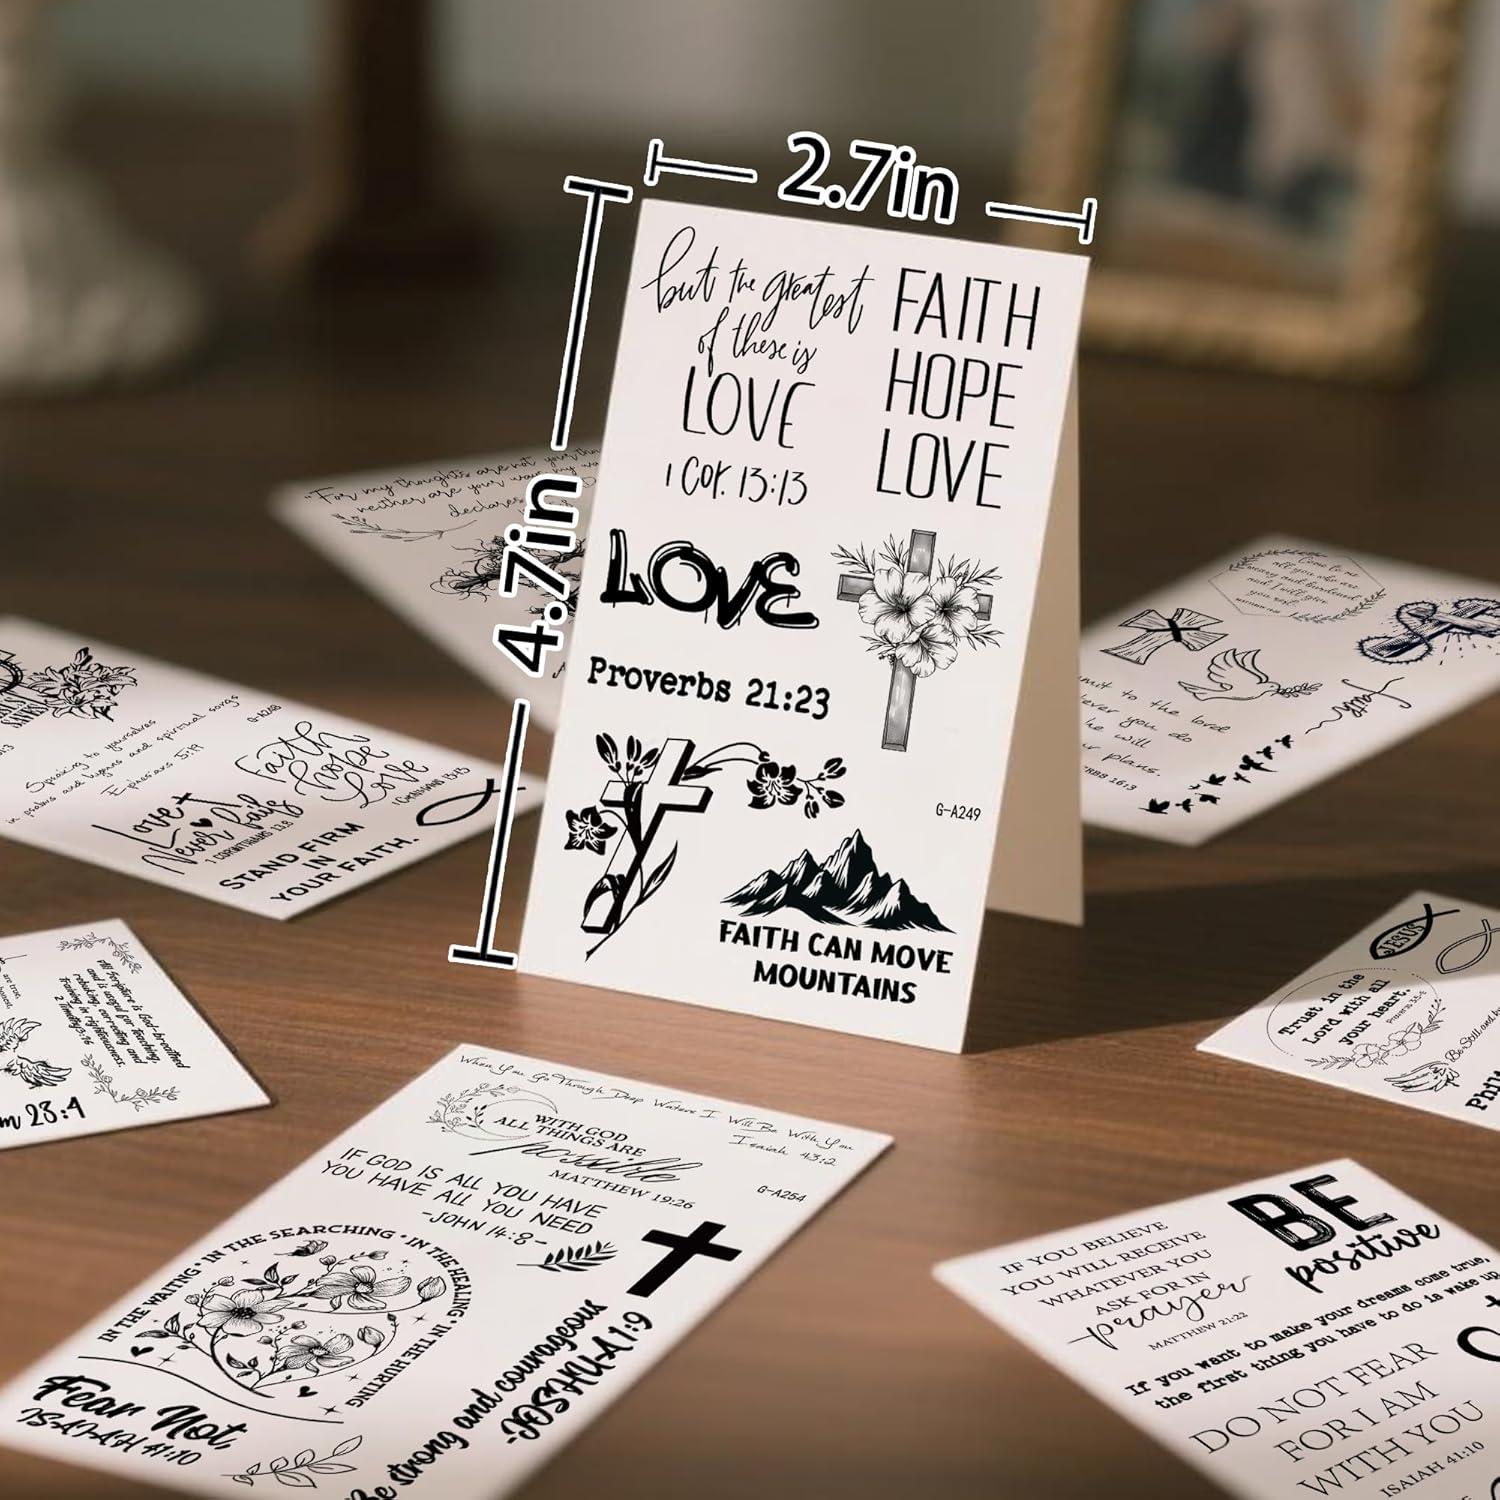 2.7in
4.7in
but the greatest
of these is
LOVE
1 Cor. 13:13
FAITH
HOPE
LOVE
LOVE
Proverbs 21:23
G-A249
FAITH CAN MOVE
MOUNTAINS
"For my thoughts are not
neither are your
declares
Speaking to yourselves
in psalms and hymns and spiritual songs
Ephesians 5:19
G-A248
Faith
hope
Love
1 CORINTHIANS 13:13
Love
Never fails
1 CORINTHIANS 13:8
STAND FIRM
IN
YOUR FAITH.
Come to me
all you who are
weary and burdened
and I will give
you rest
to the lord
you do
he will
plans.
16:3
All Scripture is God-breathed
and is useful for teaching,
rebuking, correcting and
training in righteousness.
2 Timothy 3:16
are true,
28:4
JESUS
Trust in the
Lord with all
your heart.
Be Still and
When You Go Through Deep Waters I Will Be With You
Isaiah 43:2
WITH GOD
ALL THINGS ARE
possible
MATTHEW 19:26
G-A254
IF GOD IS ALL YOU HAVE
YOU HAVE ALL YOU NEED
-JOHN 14:8-
IN THE WAITING • IN THE SEARCHING • IN THE HEALING • IN THE HURTING
Fear Not,
ISAIAH 41:10
Be strong and courageous
-JOSHUA 1:9
IF YOU BELIEVE
YOU WILL RECEIVE
WHATEVER YOU
ASK FOR IN
prayer
MATTHEW 21:22
BE
positive
If you want to make your dreams come true,
the first thing you have to do is wake up
DO NOT FEAR
FOR I AM
WITH YOU
ISAIAH 41:10